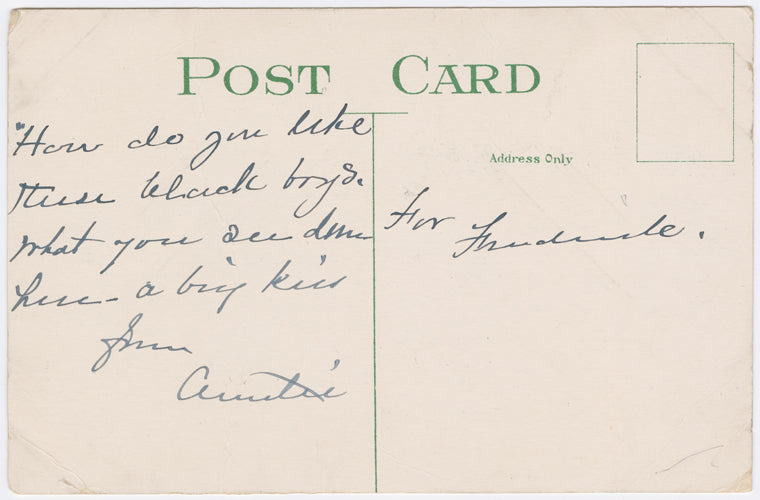 POST CARD
Address Only
"How do you like
these black boys.
What you see down
here - a big kiss
from
Auntie
For